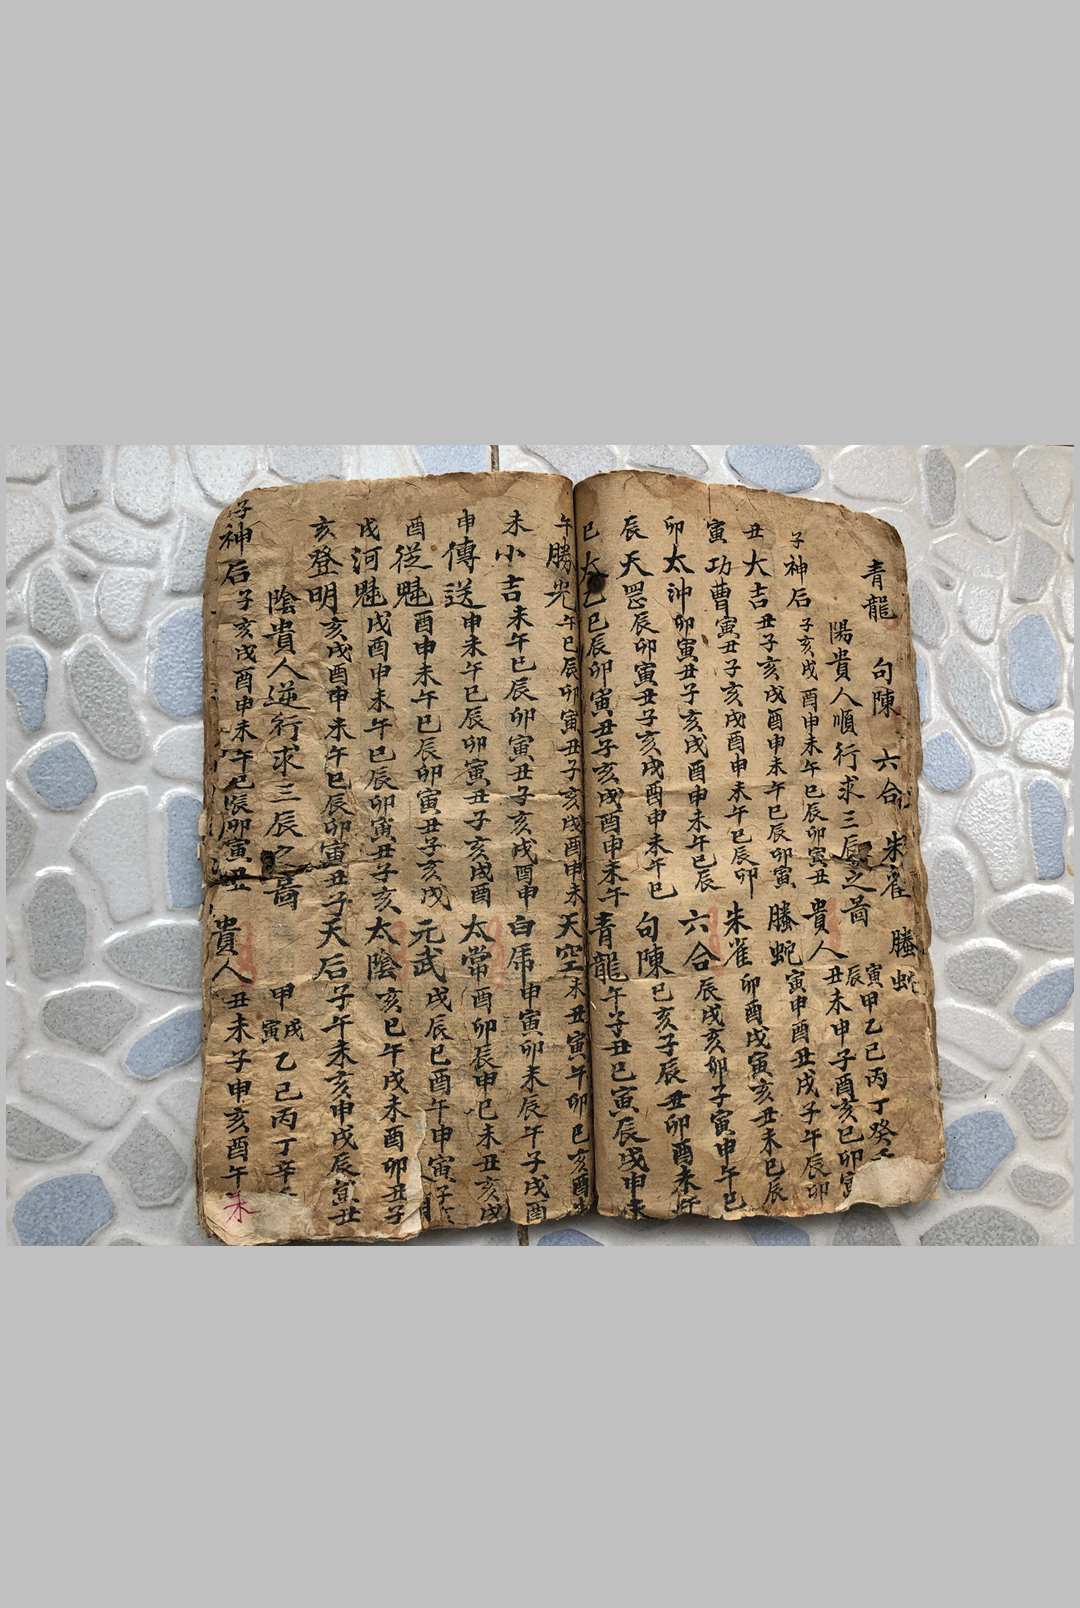 青龍 句陳 六合 朱雀 螣蛇
陽貴人順行求三辰之啚 寅辰甲乙巳丙丁癸
子神后子亥戌酉申未午巳辰卯寅丑 貴人丑未申子酉亥巳卯寅
丑大吉丑子亥戌酉申未午巳辰卯寅 螣蛇寅申酉丑戌子午辰卯
寅功曹寅丑子亥戌酉申未午巳辰卯 朱雀卯酉戌寅亥丑未巳辰
卯太沖卯寅丑子亥戌酉申未午巳辰 六合辰戌亥卯子寅申午巳
辰天罡辰卯寅丑子亥戌酉申未午巳 句陳巳亥子辰丑卯酉未午
巳太乙巳辰卯寅丑子亥戌酉申未午 青龍午子丑巳寅辰戌申未
午勝光午巳辰卯寅丑子亥戌酉申未 天空未丑寅午卯巳亥酉
未小吉未午巳辰卯寅丑子亥戌酉申 白虎申寅卯未辰午子戌酉
申傳送申未午巳辰卯寅丑子亥戌酉 太常酉卯辰申巳未丑亥戌
酉從魁酉申未午巳辰卯寅丑子亥戌 元武戌辰巳酉午申寅子
戌河魁戌酉申未午巳辰卯寅丑子亥 太陰亥巳午戌未酉卯丑子
亥登明亥戌酉申未午巳辰卯寅丑子 天后子午未亥申戌辰寅丑
陰貴人逆行求三辰之啚 甲戌寅乙巳丙丁辛
子神后子亥戌酉申未午巳辰卯寅丑 貴人丑未子申亥酉午未